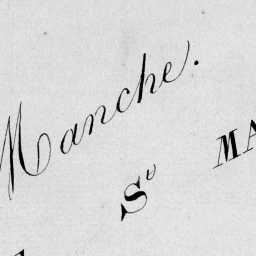 Manche.
Sᵘ MA